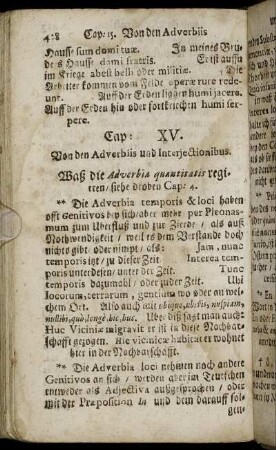 428 Cap: 15. Von den Adverbiis
Hauss sum domi tuæ. In meines Bru-
ders Hauss domi fratris. Er ist auss
im Kriege abest belli oder militiæ. Die
Arbeiter kommen vom Felde operæ rure rede-
unt. Auff der Erden liggen humi jacere.
Auff der Erden hin oder fortkriechen humi ser-
pere.
Cap: XV.
Von den Adverbiis und Interjectionibus.
Waß die Adverbia quantitatis regi-
ren/ siehe droben Cap: 4.
** Die Adverbia temporis & loci haben
offt Genitivos bey sich/ aber mehr per Pleonas-
mum zum Uberfluß und zur Zierde/ als auß
Nothwendigkeit/ weil es dem Verstande doch
nichts gibt oder nimpt/ als: Jam, nunc
temporis itzt/ zu dieser Zeit. Interea tem-
poris unterdessen/ unter der Zeit. Tunc
temporis dazumahl/ oder zu der Zeit. Ubi
locorum, terrarum, gentium wo oder an wel-
chem Ort. Also auch mit eò, quò, aliubi, nusquam,
nullibi, quò, longè, hic, huc. Uber diß sagt man auch:
Huc Viciniæ migravit er ist in diese Nachbar-
schafft gezogen. Hic viciniæ habitat er wohnet
hier in der Nachbarschafft.
** Die Adverbia loci nehmen noch andere
Genitivos an sich/ werden aber im Teutschen
entweder als Adjectiva außgesprochen/ oder
mit der Præposition In und dem darauff fol-
gen-